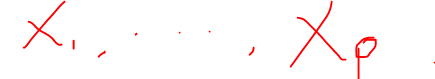 X₁, . . . , Xₚ .